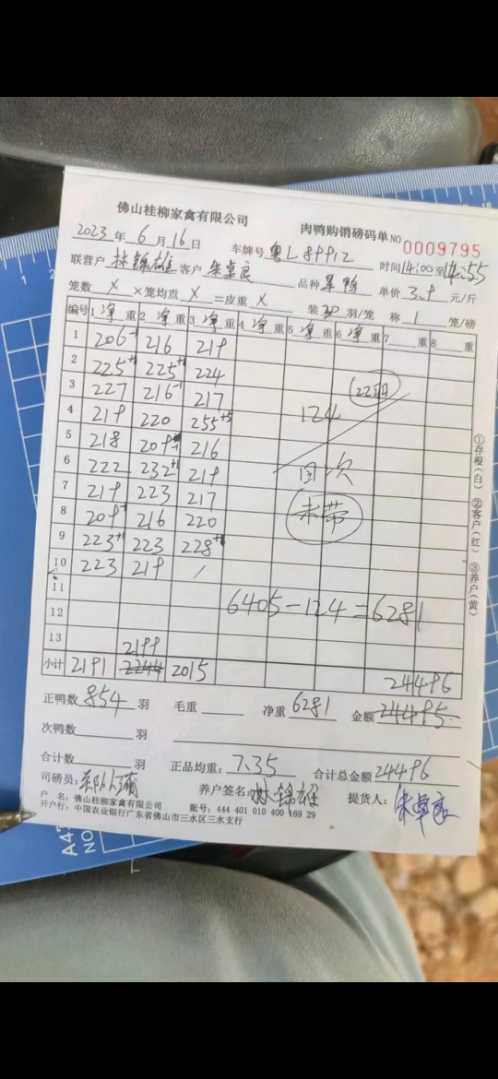 佛山桂柳家禽有限公司 肉鸭购销磅码单 NO 0009795
2023年6月16日 车牌号 粤L89912
联营户 林锦雄 客户 朱卓良 品种 时间14:00至14:55
笼数 X ×笼均直 X =皮重 X 装30羽/笼 称1笼/磅 单价3.9元/斤
编号 1净重 2净重 3净重 4净重 5净重 6净重 7重 8重
1 206 216 219
2 225 225 224
3 227 216 217
4 219 220 255 124
5 218 209 216
6 222 232 219
7 219 223 217 未带
8 209 216 220
9 223 223 228
10 223 219 /
11
12 6405-124=6281
13 2199
小计 2191 2244 2015 24496
正鸭数 854 羽 毛重 净重 6281 金额 24495
次鸭数 羽
合计数 羽 正品均重: 7.35 合计总金额 24496
司磅员: 养户签名: 林锦雄 提货人: 朱卓良
户 名: 佛山桂柳家禽有限公司 账号: 444 401 010 400 169 29
开户行: 中国农业银行广东省佛山市三水区三水支行
①存根(白) ②客户(红) ③养户(黄)